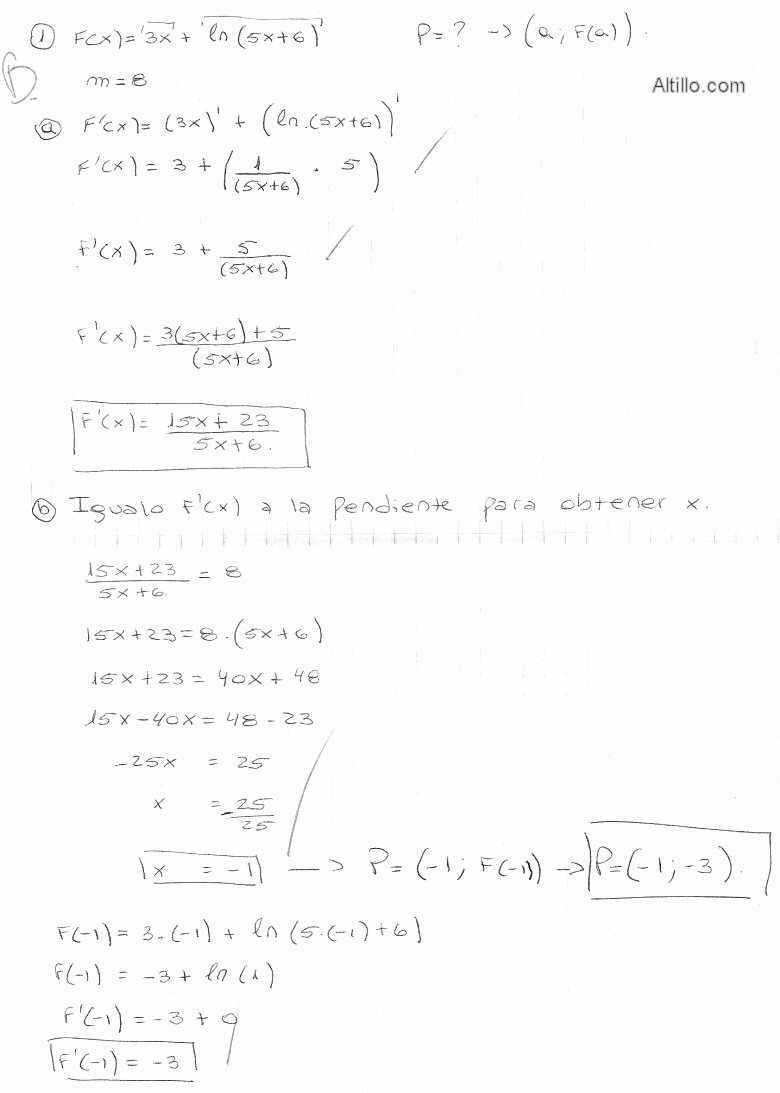 ① F(x) = 3x + ln (5x+6)    P = ? → (a ; F(a)).
B.
m = 8
Altillo.com
ⓐ F'(x) = (3x)' + (ln.(5x+6))'
F'(x) = 3 + (1/(5x+6) . 5)
F'(x) = 3 + 5/(5x+6)
F'(x) = 3(5x+6)+5/(5x+6)
F'(x) = 15x + 23/5x+6.
ⓑ Igualo F'(x) a la pendiente para obtener x.
15x+23/5x+6 = 8
15x+23 = 8.(5x+6)
15x+23 = 40x + 48
15x-40x = 48 - 23
-25x = 25
x = -25/25
x = -1 → P = (-1 ; F(-1)) → P = (-1 ; -3).
F(-1) = 3.(-1) + ln (5.(-1)+6)
F(-1) = -3 + ln (1)
F'(-1) = -3 + 0
F'(-1) = -3